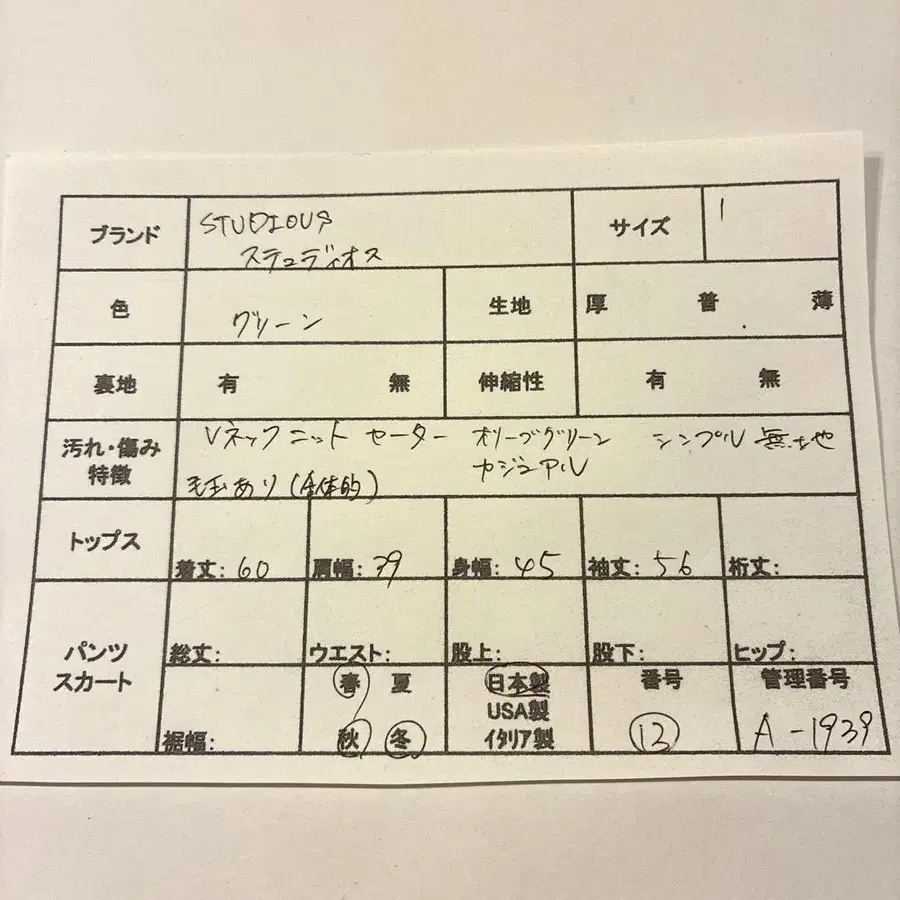 ブランド STUDIOUS サイズ 1
ステュディオス
色 グリーン 生地 厚 普 薄
裏地 有 無 伸縮性 有 無
汚れ・傷み Vネック ニット セーター オリーブグリーン シンプル 無地
カジュアル
特徴 毛玉あり(全体的)
トップス 着丈: 60 肩幅: 39 身幅: 45 袖丈: 56 裄丈:
パンツ 総丈: ウエスト: 股上: 股下: ヒップ:
スカート 春 夏 日本製 番号 管理番号
USA製
裾幅: 秋 冬 イタリア製 13 A-1939